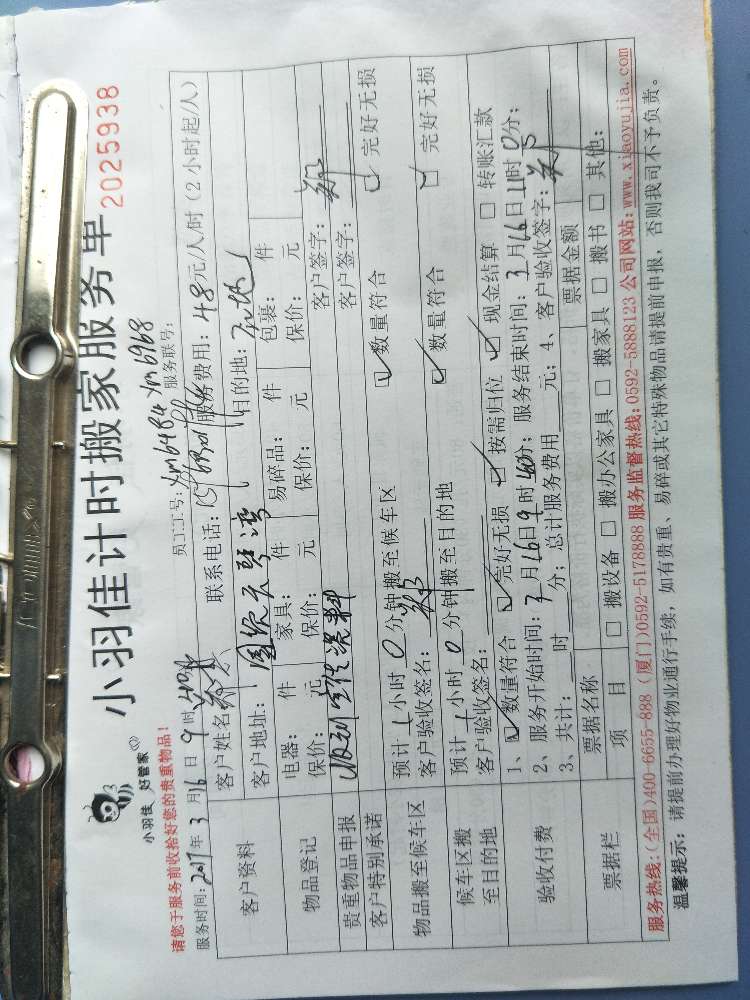 小羽佳计时搬家服务单
小羽佳 好管家
2025938
请您于服务前收拾好您的贵重物品！
员工工号：xm6484 xm6968 服务联号：
服务时间：2017年3月16日9时40分
客户资料
客户姓名 联系电话： 服务费用：48元/人/时（2小时起/人）
客户地址： 目的地：
物品登记
电器： 件 家具： 件 易碎品： 件 包裹： 件
保价： 元 保价： 元 保价： 元 保价： 元
贵重物品申报 客户签字：
客户特别承诺 客户签字：
物品搬至候车区
预计1小时0分钟搬至候车区 ☑数量符合 ☑完好无损
客户验收签名：
候车区搬至目的地
预计1小时0分钟搬至目的地 ☑数量符合 ☑完好无损
客户验收签名：
验收付费
1、☑数量符合 ☑完好无损 ☑按需归位 ☑现金结算 □转账汇款
2、服务开始时间：3月16日9时40分；服务结束时间：3月16日11时0分；
3、共计： 时 分；总计服务费用 元；4、客户验收签字：
票据栏
票据名称 票据金额
项目 □搬设备 □搬办公家具 □搬家具 □搬书 □其他：
服务热线：（全国）400-6655-888（厦门）0592-5178888 服务监督热线：0592-5888123 公司网站：www.xiaoyujia.com
温馨提示：请提前办理好物业通行手续，如有贵重、易碎或其它特殊物品请提前申报，否则我司不予负责。